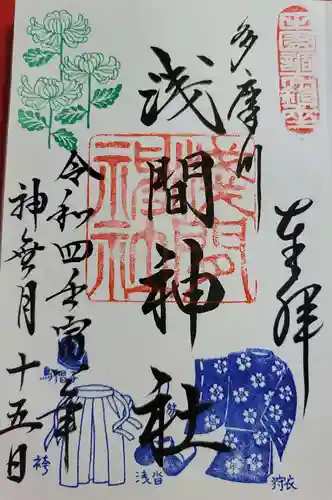 奉拝
多摩川
浅間神社
令和四壬寅年
神無月十五日
浅間
神社
烏帽子
袴
浅沓
狩衣